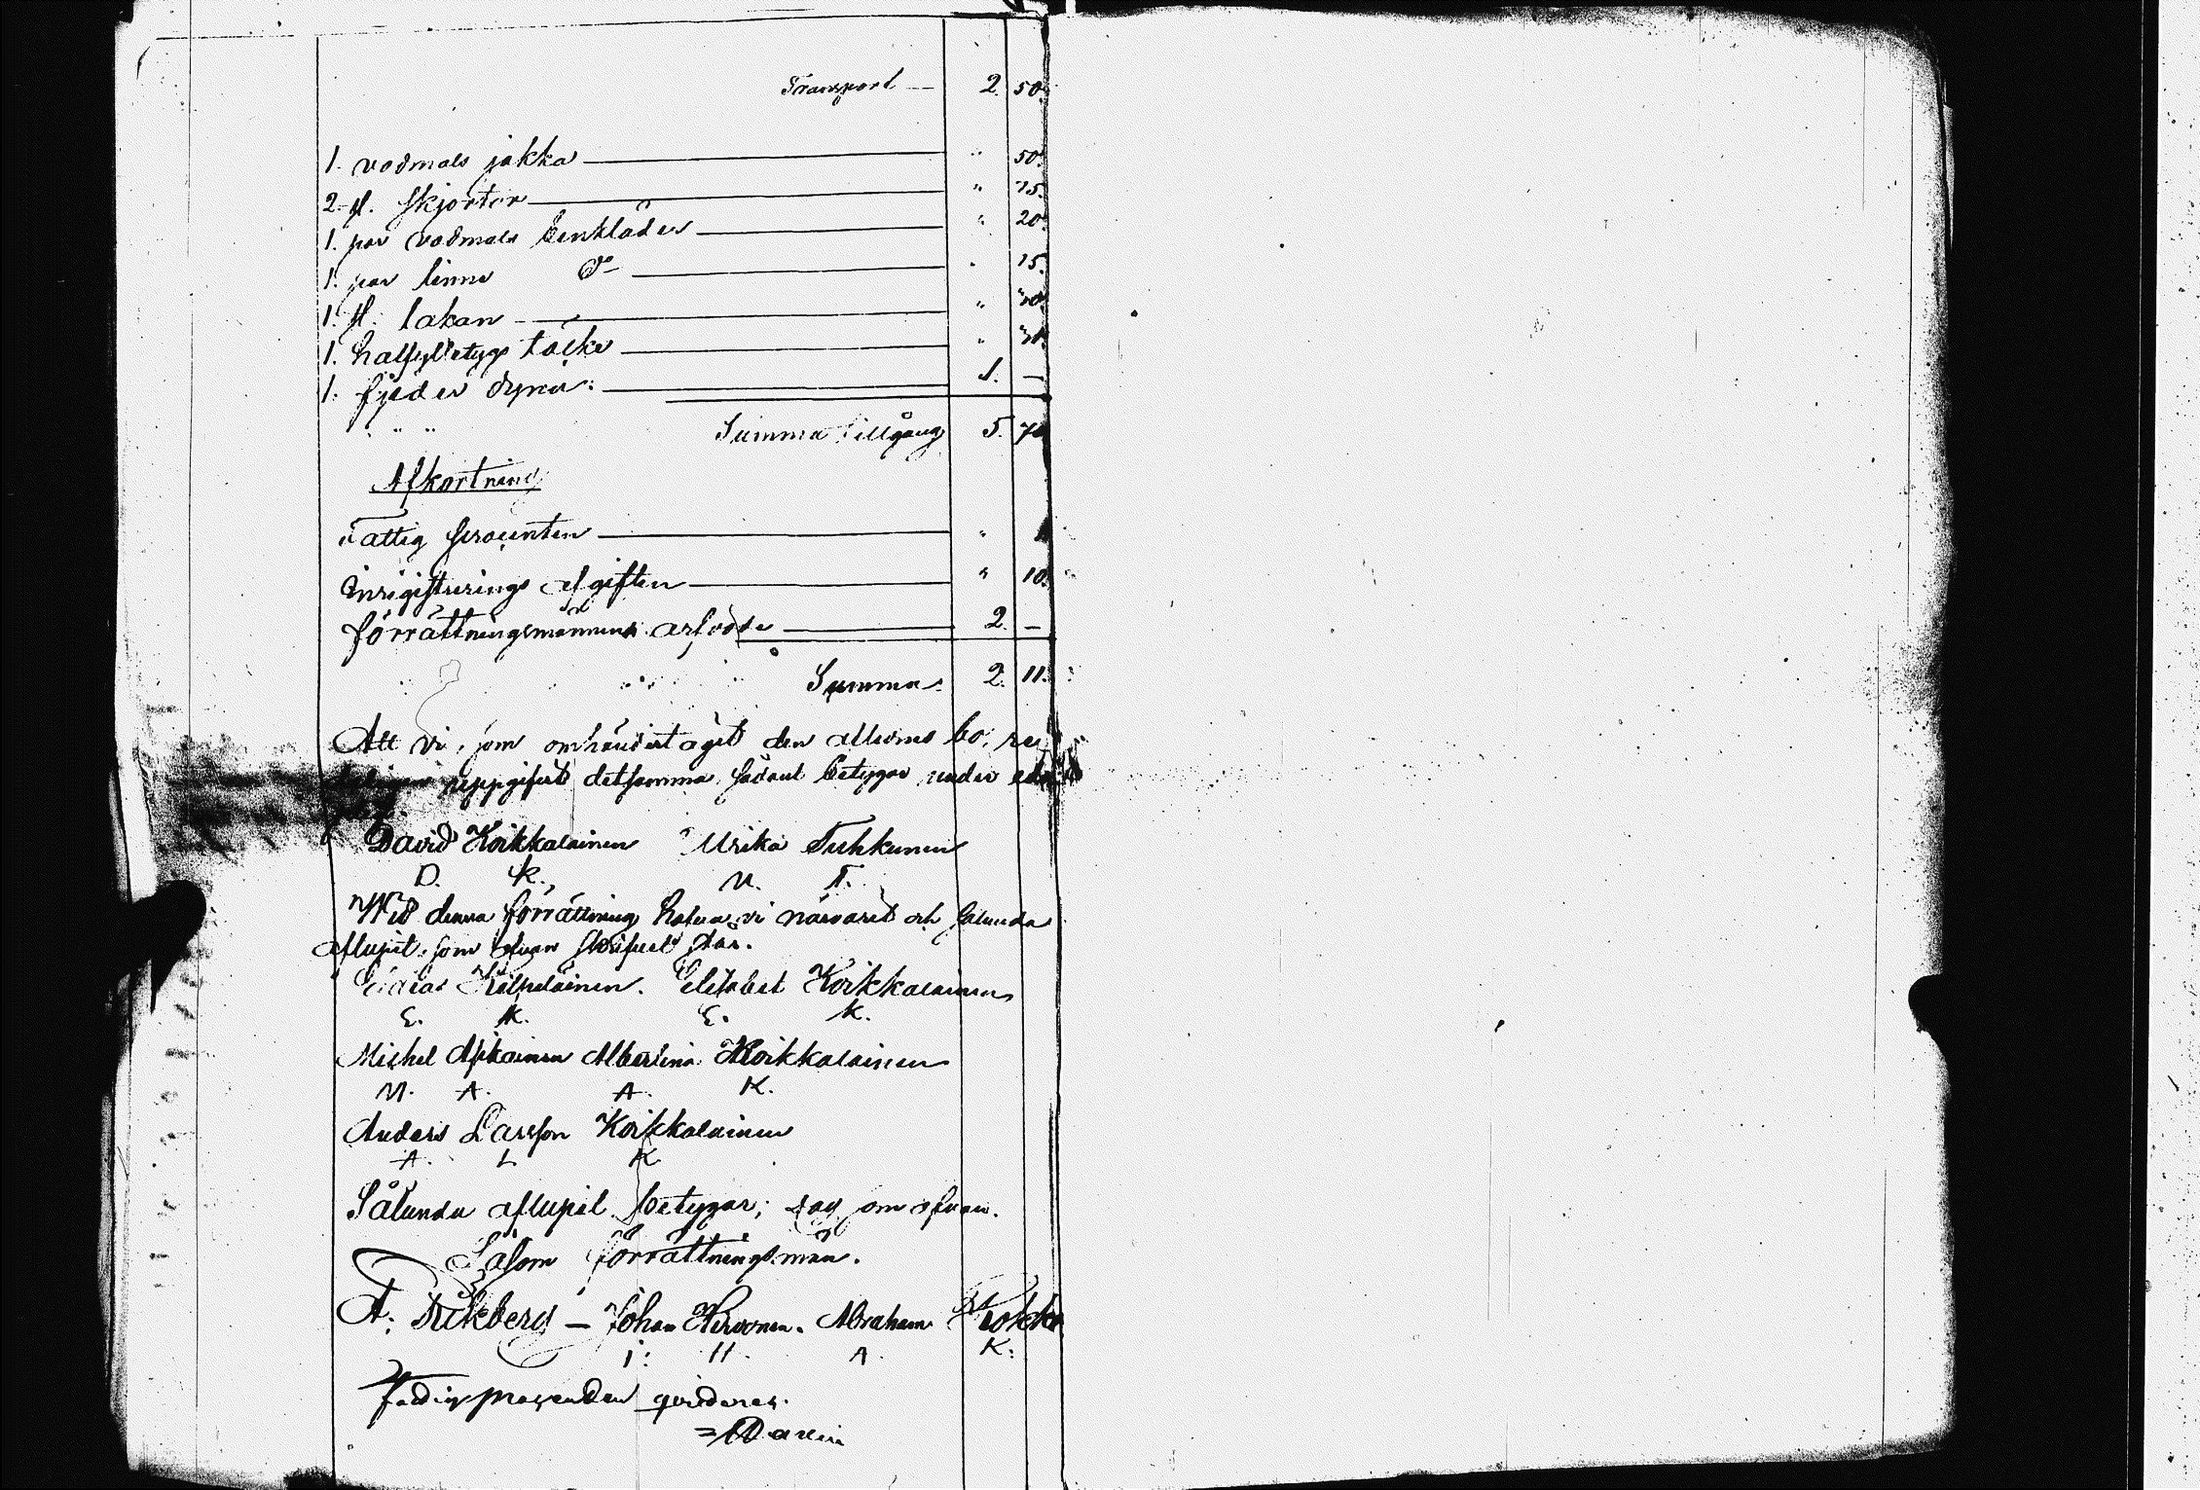 Transport — 2. 50.
1. vadmals jakka — " 50.
2. st. skjortor — " 75.
1. par vadmals benkläder — " 20.
1. par linne do — " 15.
1. st. lakan — "
1. halfylletygs täcke — "
1. fjeder dyna: — 1. —
Summa tillgång 5. 70
Afkortning
Fattig procenten — " 1
inrigistrerings afgiften — " 10.
förrättningsmännens arfvode — 2. —
Summa. 2. 11.
Att vi, som omhändertagit den aflidnes bo, re
uppgifvit detsamma, sådant betygar under
David Koikkalainen Ulrika Tuhkunen
D. K. U. T.
Wid denna förrättning hafva vi närvarit och sålunda
aflupit, som ofvan skrifvet står.
Kilpeläinen. Elisabet Koikkalainen
E. K. E. K.
Michel Asikainen Albertina Koikkalainen
M. A. A. K.
Anders Larsson Koikkalainen
A. L. K.
Sålunda aflupit betygar; dag som ofvan.
Såsom förrättningsmän.
A. Dikberg — Johan Hirvonen. Abraham
J: H. A. K:
Fattigprocenten qvitteras.